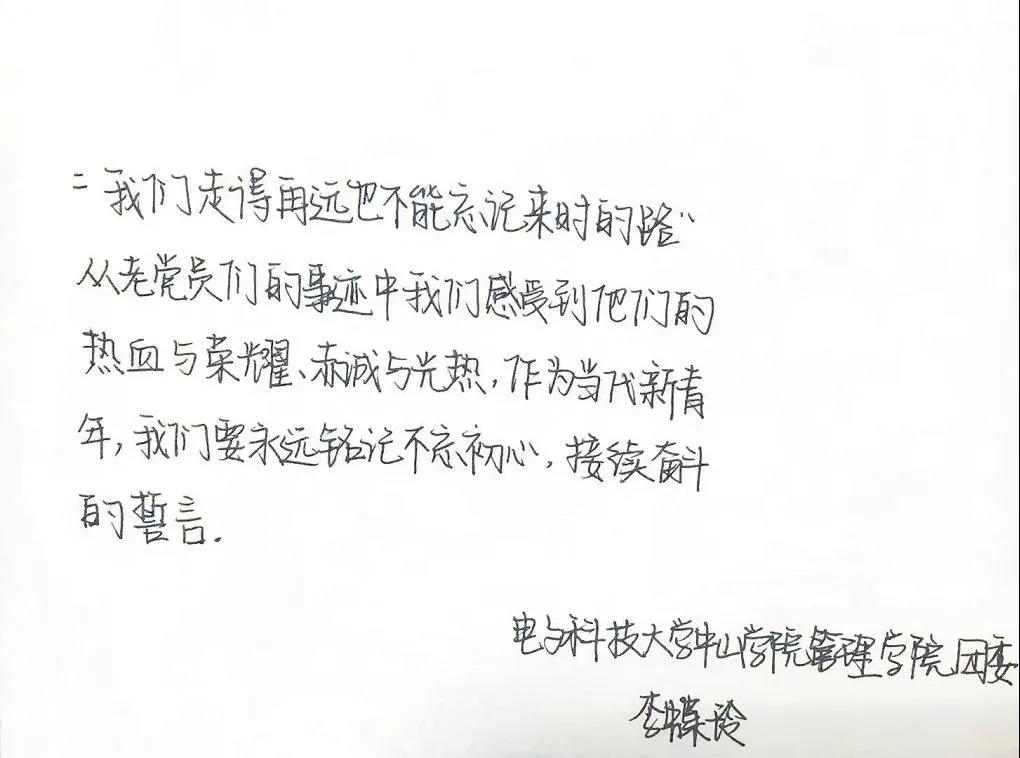 “我们走得再远也不能忘记来时的路”
从老党员们的事迹中我们感受到他们的
热血与荣耀、赤诚与光热，作为当代新青
年，我们要永远铭记不忘初心，接续奋斗
的誓言.
电子科技大学中山学院管理学院团委
李蝶玲